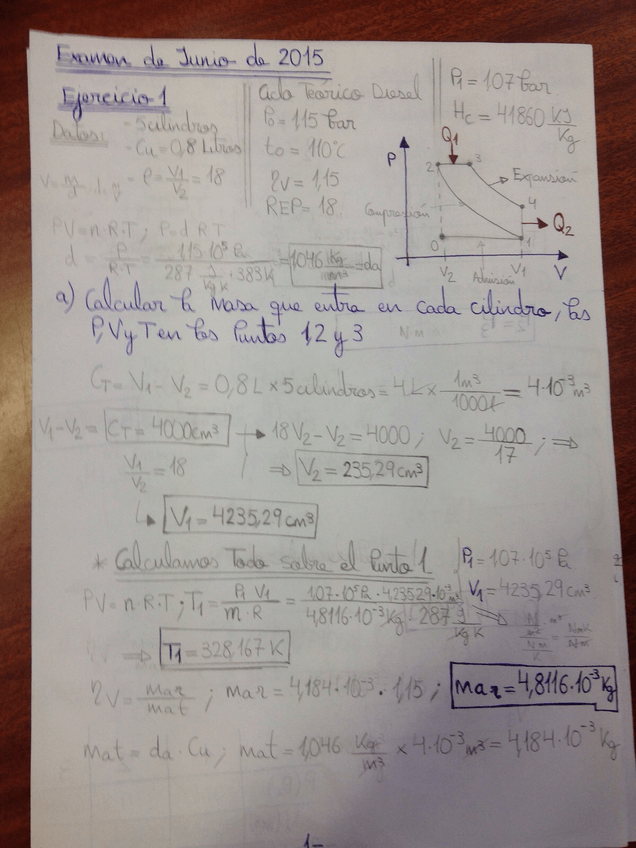 Examen de Junio de 2015
Ejercicio 1
Datos:
- 5 cilindros
- Cu = 0,8 Litros
- ρ = V1/V2 = 18
Ciclo Teórico Diesel
Po = 1,15 bar
to = 110ºC
ηV = 1,15
REP = 18
P1 = 1,07 bar
Hc = 41860 KJ/Kg
P
Q1
2
3
Expansión
4
Compresión
Q2
0
1
Admisión
V2
V1
V
PV = n·R·T ; P = d·R·T
d = P/R·T = 1,15·10⁵ Pa / 287 J/Kg K · 383K = 1,046 Kg/m³ = da
a) Calcular la masa que entra en cada cilindro, las
P, V y T en los puntos 1, 2 y 3
CT = V1 - V2 = 0,8L × 5 cilindros = 4L × 1m³/1000L = 4·10⁻³ m³
V1 - V2 = CT = 4000cm³ → 18V2 - V2 = 4000 ; V2 = 4000/17 ; ⇒
V1/V2 = 18 ⇒ V2 = 235,29cm³
↳ V1 = 4235,29cm³
* Calculamos Todo sobre el Punto 1.
P1 = 1,07·10⁵ Pa
V1 = 4235,29cm³
PV = n·R·T ; T1 = P1·V1/m·R = 1,07·10⁵ Pa · 4235,29·10⁻⁶ m³ / 4,8116·10⁻³ Kg · 287 J/Kg K
⇒ T1 = 328,167 K
ηV = mar/mat ; mar = 4,184·10⁻³ · 1,15 ; mar = 4,8116·10⁻³ Kg
mat = da · Cu ; mat = 1,046 Kg/m³ × 4·10⁻³ m³ = 4,184·10⁻³ Kg
1-